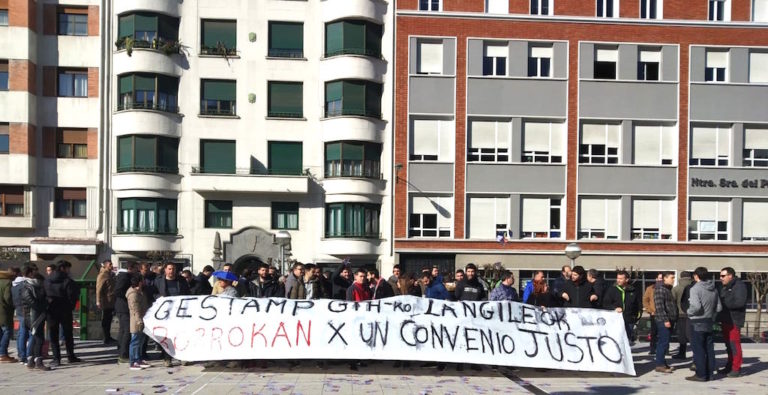 Ntra. Sra. del P
GESTAMP GTH-Ko LANGILEOK
BORROKAN X UN CONVENIO JUSTO